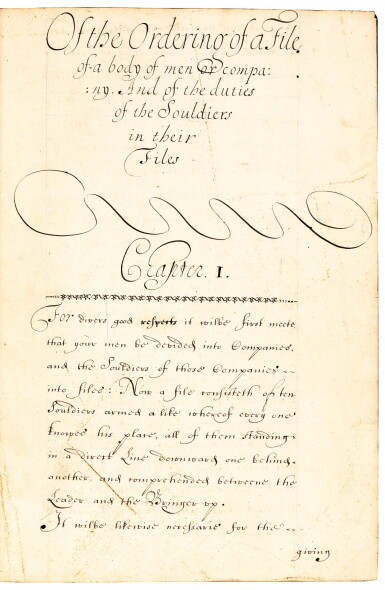 Of the Ordering of a File
of a body of men or compa:
:ny. And of the duties
of the Souldiers
in their
Files
Chapter. I.
For divers good respects it wilbe first meete
that your men be devided into Companies,
and the Souldiers of those Companies --
into files: Now a file consisteth of ten
Souldiers armed a like whereof every one
knowes his place, all of them standing
in a direct Line downward one behind
another, and comprehended betweene the
Leader and the Bringer vp.
It wilbe likewise necessarie for the --
giving